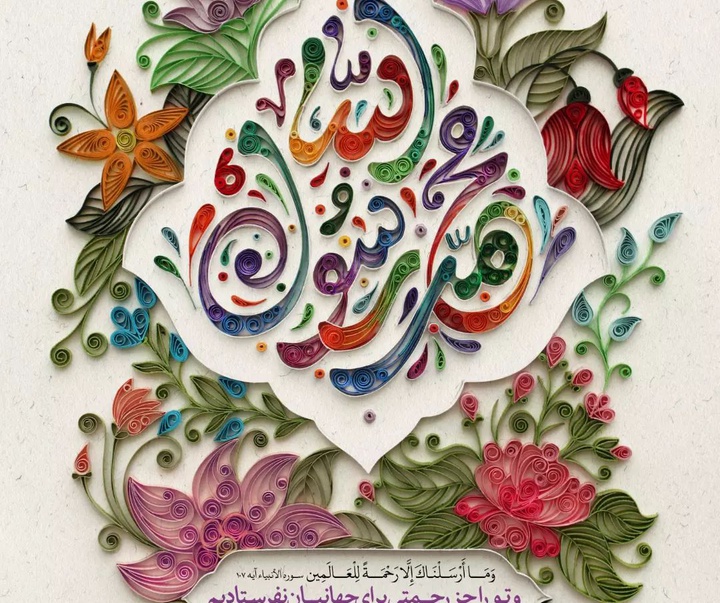 محمد رسول الله
وَمَا أَرْسَلْنَاكَ إِلَّا رَحْمَةً لِلْعَالَمِين سوره الأنبیاء آیه ۱۰۷
و تو را جز رحمتی برای جهانیان نفرستادیم